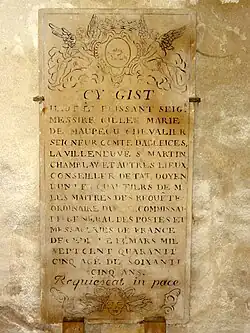 CY GIST
HAUT ET PUISSANT SEIG.
MESSIRE GILLES MARIE
DE MAUPEOU CHEVALIER
SEIGNEUR COMTE D'ABLEIGES
LA VILLENEUVE S. MARTIN
CHAMPLAY ET AUTRES LIEUX
CONSEILLER DETAT, DOYEN
MAITRES DES REQUETE
ORDINAIRE DU COMMISSAI
GENERAL DES POSTES ET
MESSAGERIES DE FRANCE
MARS MIL
SEPT CENT QUARANTE
CINQ AGE DE SOIXANTE
CINQ ANS.
Requiescat in pace